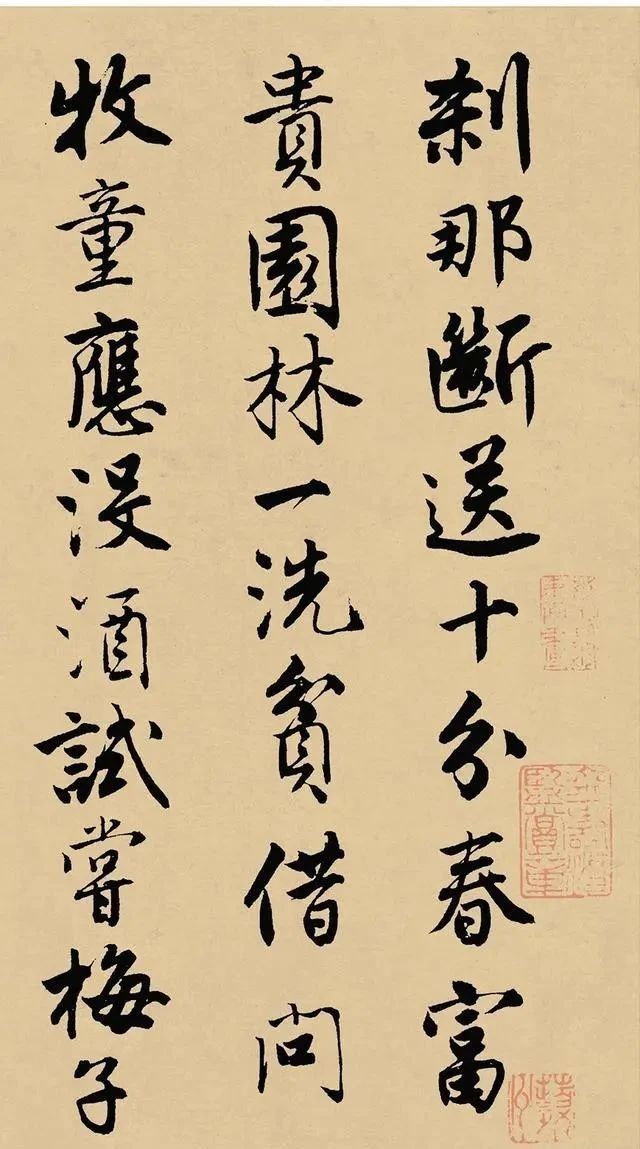 刹那斷送十分春富
貴園林一洗貧借問
牧童應沒酒試嘗梅子